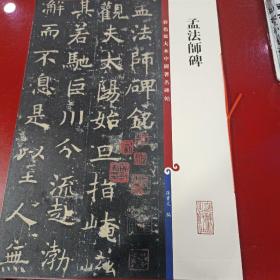 孟法師碑
彩色放大本中國著名碑帖
編
孟法師碑銘
觀夫太陽始旦指崦
其若馳巨川分流赴渤
而不
以至人無